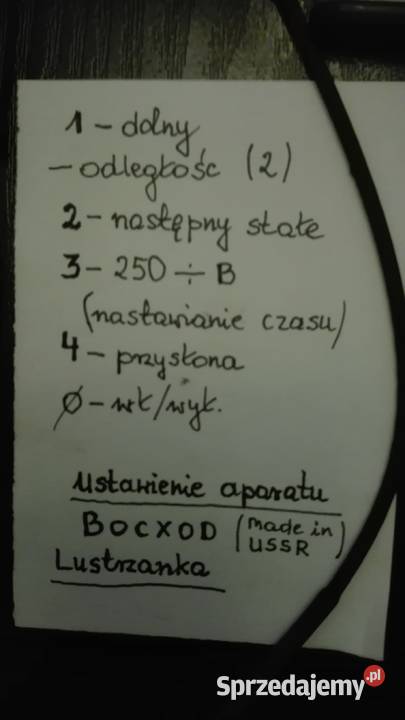 1 - dolny
- odległość (2)
2 - następny stałe
3 - 250 ÷ B
(nastawianie czasu)
4 - przysłona
Ø - wł/wył.
Ustawienie aparatu
BOCXOD (made in USSR)
Lustrzanka
Sprzedajemy.pl